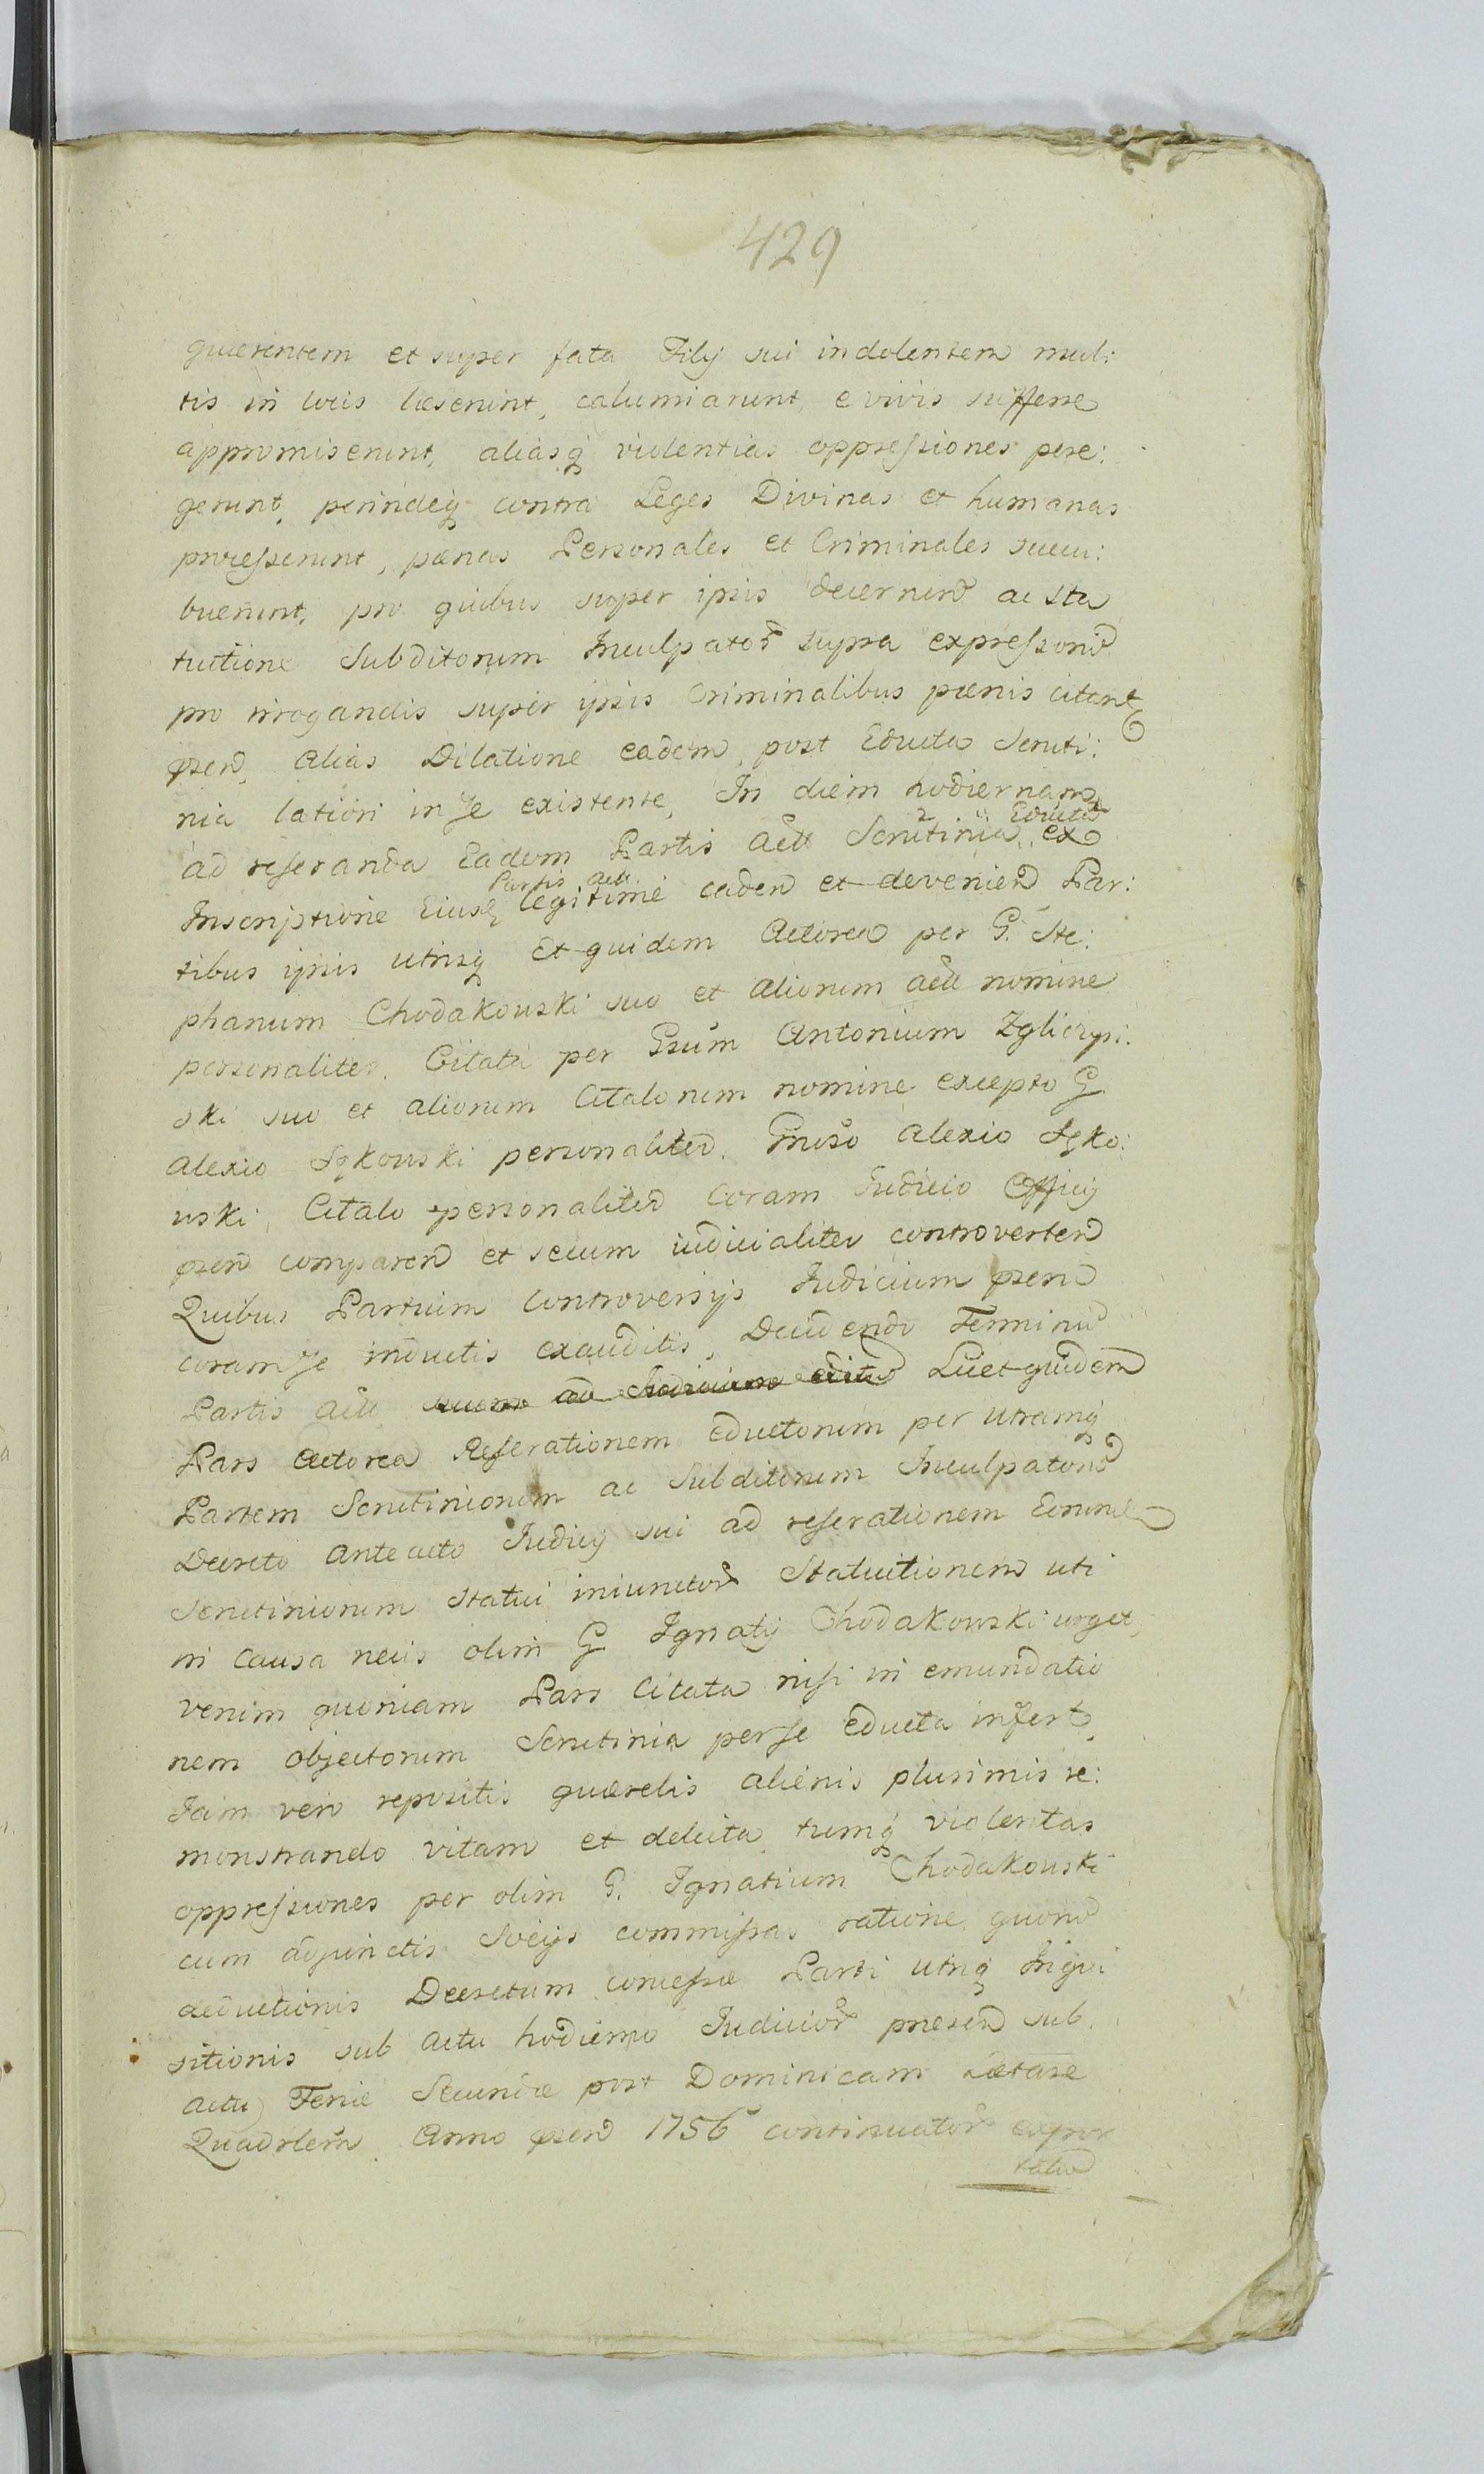 429
quærentem et super fata Filij sui indolentem mul:
tis in locis læserunt, calumiarunt, e vivis sufferre
appromiserunt, aliasq violentias oppressiones pere:
gerunt, perindeq contra Leges Divinas et humanas
processerunt, pænas Personales et Criminales succu:
buerunt, pro quibus super ipsis decernend ac sta
tuitione Subditorum Inculpator supra expressor
pro irrogandis super ipsis Criminalibus pænis citant
psen, alias Dilatione eadem, post Educta Scruti:
nia latiori in se existente, In diem hodiernam
ad reseranda Eadem Partis act Scrutinia Educta ex
Inscriptione Eiusq Partis act legitime caden et devenien Par:
tibus ipsis utrisq Et quidem Actorea per G. Ste:
phanum Chodakouski suo et aliorum act nomine
personaliter. Citata per Gsum Antonium Zglicyn:
ski suo et aliorum Citatorum nomine excepto G
Alexio Sękouski personaliter. Gnoso Alexio Sęko:
uski Citato personaliter Coram Iudicio Officij
psen comparen et secum iudicialiter controverten
Quibus Partium Controversijs Iudicium psen
coram se inductis exauditis, Decidendo Terminu
Partis act Licet quidem
Pars Actorea Reserationem eductorum per utramq
Partem Scrutiniorum ac Subditorum Inculpator
Decreto ante acto Iudicij sui ad reserationem Eorund
Scrutiniorum statui iniunctor Statuitionem uti
in Causa necis olim G Ignatij Chodakowski urget,
verum quoniam Pars Citata nisi in emundatio
nem objectorum Scrutinia per se educta infert,
Iam vero repositis quærelis alienis plurimis re:
monstrando vitam et delicta tumq violentas
oppressiones per olim G. Ignatium Chodakouski
cum adjunctis Socijs commissas ratione quor
deductionis Decretum concessæ Parti utriq Inqui
sitionis sub actu hodierno Iudicior præsen sub
actu Feriæ Secundæ post Dominicam Lætare
Quadrlem Anno psen 1756 continuator expor
tatur